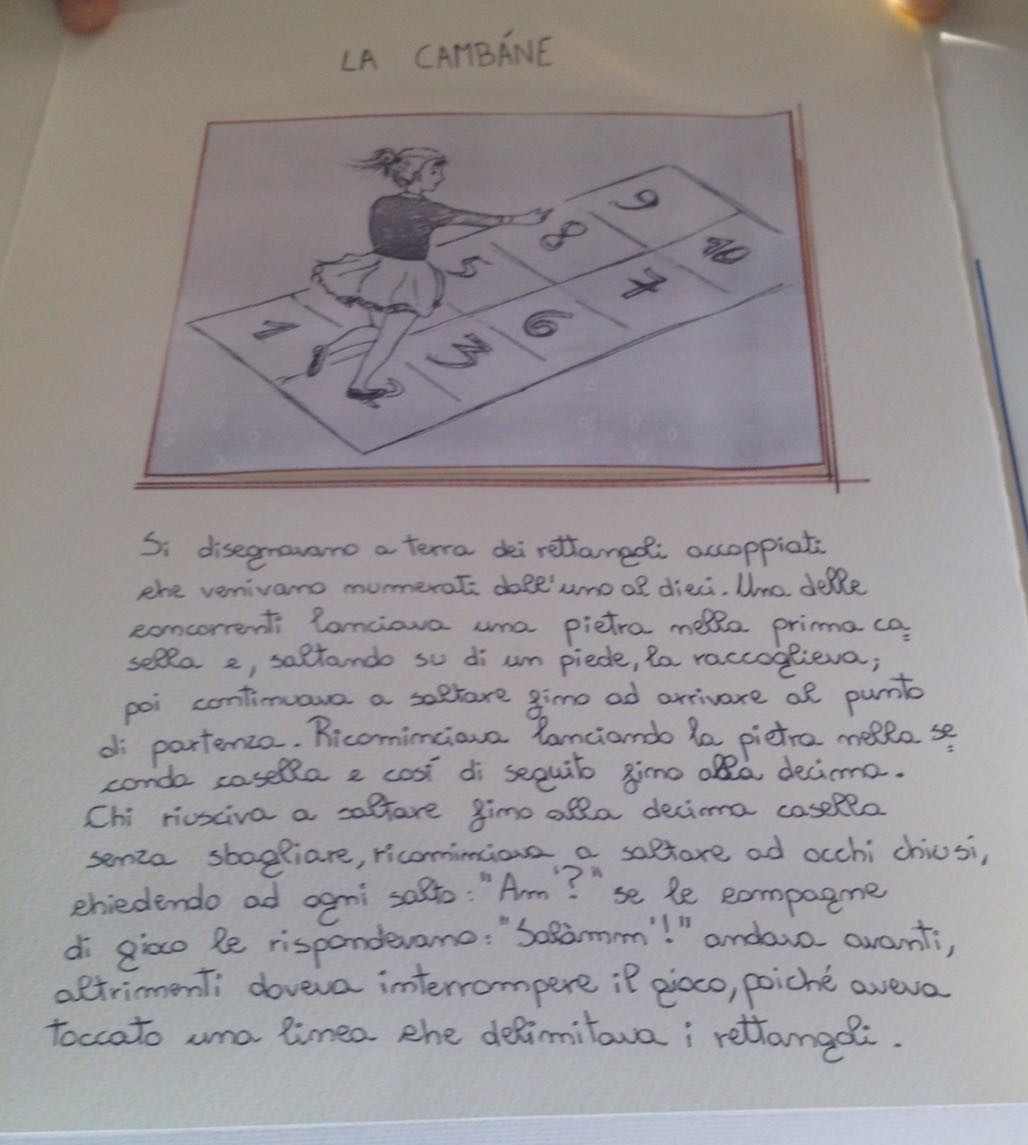 LA CAMBÁNE
9
8
10
5
7
1
6
3
2
Si disegnavano a terra dei rettangoli accoppiati
che venivano numerati dall'uno al dieci. Una delle
concorrenti lanciava una pietra nella prima ca=
sella e, saltando su di un piede, la raccoglieva;
poi continuava a saltare fino ad arrivare al punto
di partenza. Ricominciava lanciando la pietra nella se=
conda casella e così di seguito fino alla decima.
Chi riusciva a saltare fino alla decima casella
senza sbagliare, ricominciava a saltare ad occhi chiusi,
chiedendo ad ogni salto: "Am'?" se le compagne
di gioco le rispondevano: "Salàmm'!" andava avanti,
altrimenti doveva interrompere il gioco, poiché aveva
toccato una linea che delimitava i rettangoli.